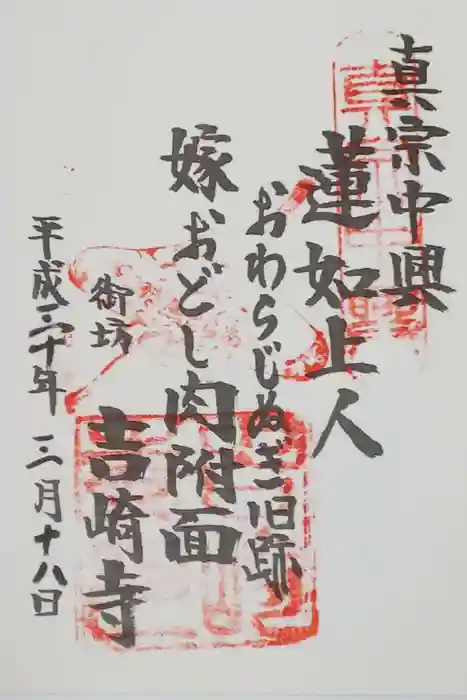 真宗中興
蓮如上人
おわらじぬぎ旧跡
嫁おどし肉附面
御坊
吉崎寺
平成三十年 三月十八日